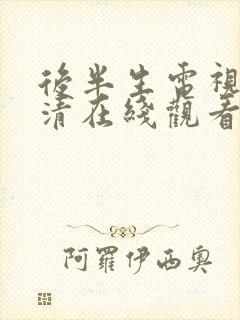 後半生電視
清在綫觀看
阿羅伊西奧